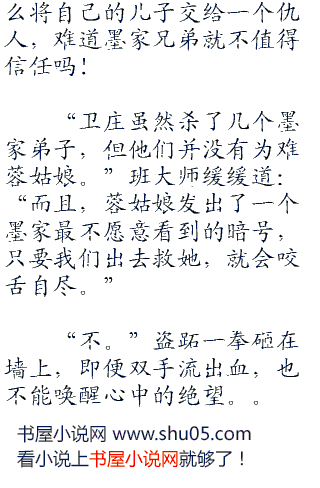 么将自己的儿子交给一个仇
人，难道墨家兄弟就不值得
信任吗！
“卫庄虽然杀了几个墨
家弟子，但他们并没有为难
蓉姑娘。”班大师缓缓道：
“而且，蓉姑娘发出了一个
墨家最不愿意看到的暗号，
只要我们出去救她，就会咬
舌自尽。”
“不。”盗跖一拳砸在
墙上，即便双手流出血，也
不能唤醒心中的绝望。。
书屋小说网 www.shu05.com
看小说上书屋小说网就够了！